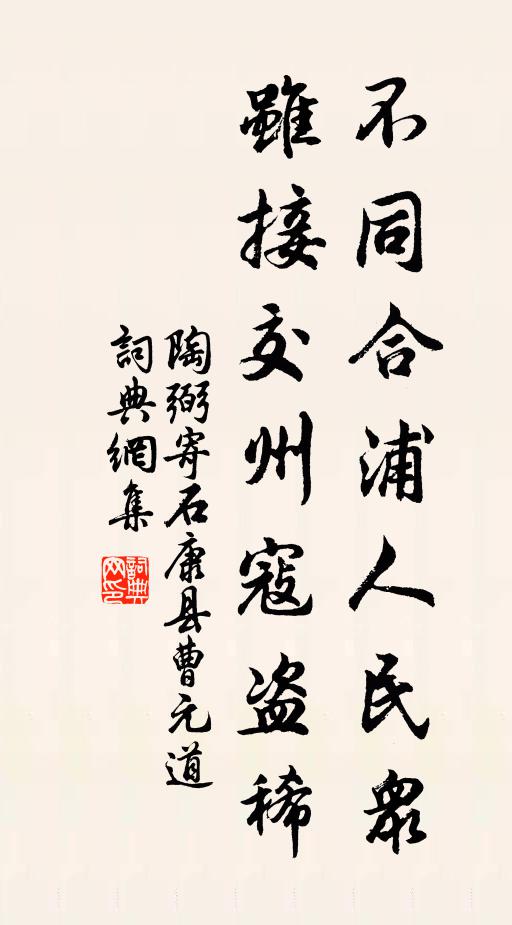 不同合浦人民衆
雖接交州寇盗稀
陶弼寄石康县曹元道
詞典網集
詞典网印